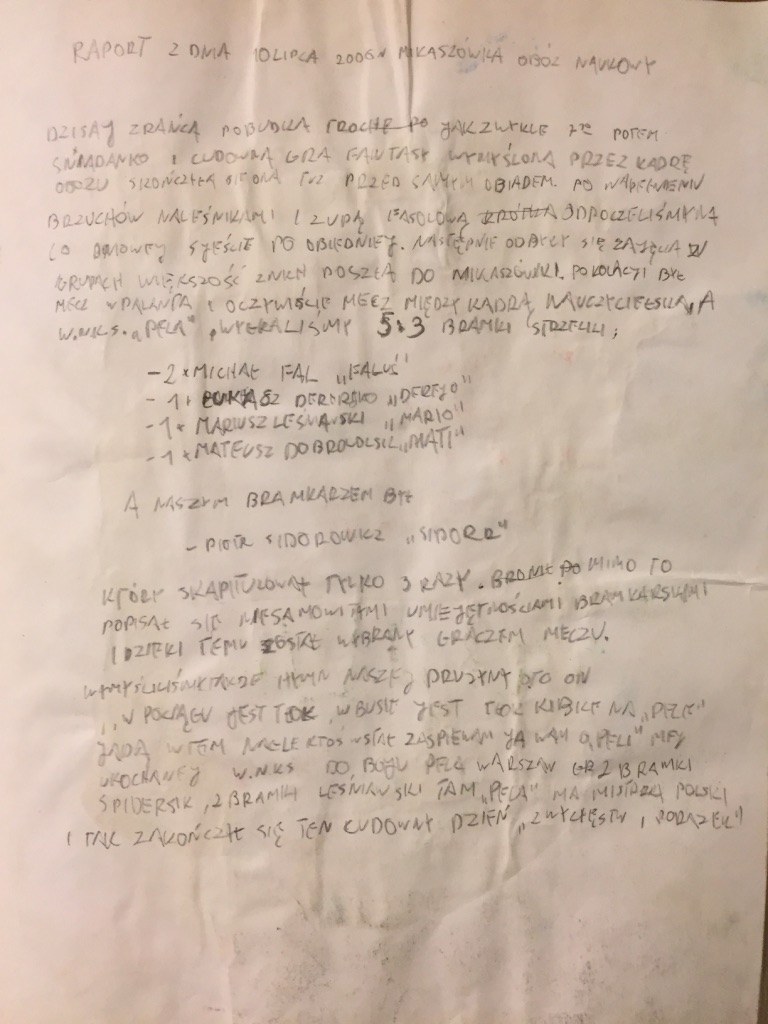 RAPORT Z DNIA 10 LIPCA 2006R MIKASZÓWKA OBÓZ NAUKOWY
DZISAJ ZRANKA POBUDKA JAK ZWYKLE 7:00 POTEM
ŚNIADANKO I CUDOWNA GRA FANTASY WYMYŚLONA PRZEZ KADRĘ
OBOZU SKOŃCZYŁA SIĘ ONA TUŻ PRZED SAMYM OBIADEM. PO NAPEŁNIENIU
BRZUCHÓW NALEŚNIKAMI I ZUPĄ FASOLOWĄ ODPOCZELIŚMY NA
SJEŚCIE PO OBIEDNIEJ. NASTĘPNIE ODBYŁY SIĘ ZAJĘCIA W
GRUPACH WIĘKSZOŚĆ Z NICH POSZŁA DO MIKASZÓWKI. PO KOLACJI BYŁ
MECZ W PALANTA I OCZYWIŚCIE MECZ MIĘDZY KADRĄ NAUCZYCIELSKĄ, A
W.N.K.S. „PELA", WYGRALIŚMY 5:3 BRAMKI STRZELILI;
- 2 x MICHAŁ FAL „FALUŚ"
- 1 x ŁUKASZ „DEREJO"
- 1 x MARIUSZ LEŚNIAWSKI „MARIO"
- 1 x MATEUSZ DOBROWOLSKI „MATI"
A NASZYM BRAMKARZEM BYŁ
- PIOTR SIDOROWICZ „SIDOR"
KTÓRY SKAPITULOWAŁ TYLKO 3 RAZY. PO MIMO TO
POPISAŁ SIĘ NIESAMOWITAMI UMIEJĘTNOŚCIAMI BRAMKARSKIMI
I DZIEKI TEMU ZOSTAŁ WYBRANY GRACZEM MECZU.
WYMYŚLILIŚMY TAKŻE HYMN NASZEJ DRUŻYNY OTO ON
„W POCIĄGU JEST TŁOK, W BUSIE JEST TŁOK KIBICE NA „PELE"
JADĄ WTEM NAGLE KTOŚ WSTAŁ ZAŚPIEWAM JA WAM O „PELI" MEJ
UKOCHANEJ W.N.K.S DO BOJU PELA WARSZAW 2 BRAMKI
ŚPIDERSIK, 2 BRAMKI LEŚNIAWSKI TAM „PELA" MA MISTRZA POLSKI
I TAK ZAKOŃCZYŁ SIĘ TEN CUDOWNY DZIEŃ „ZWYCIĘSTW I PORAŻEK"